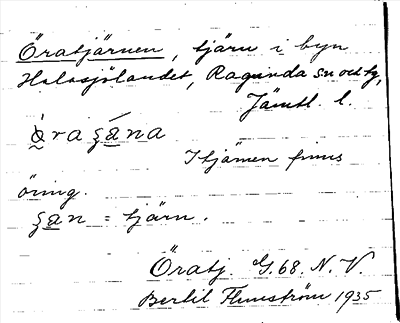 Öratjärnen, tjärn i byn
Halasjölandet, Ragunda sn och tg,
Jämtl. l.
ò̰raʂána
I tjärnen finns
öring.
ʂan = tjärn.
Öratj. G. 68. N. V.
Bertil Flemström 1935